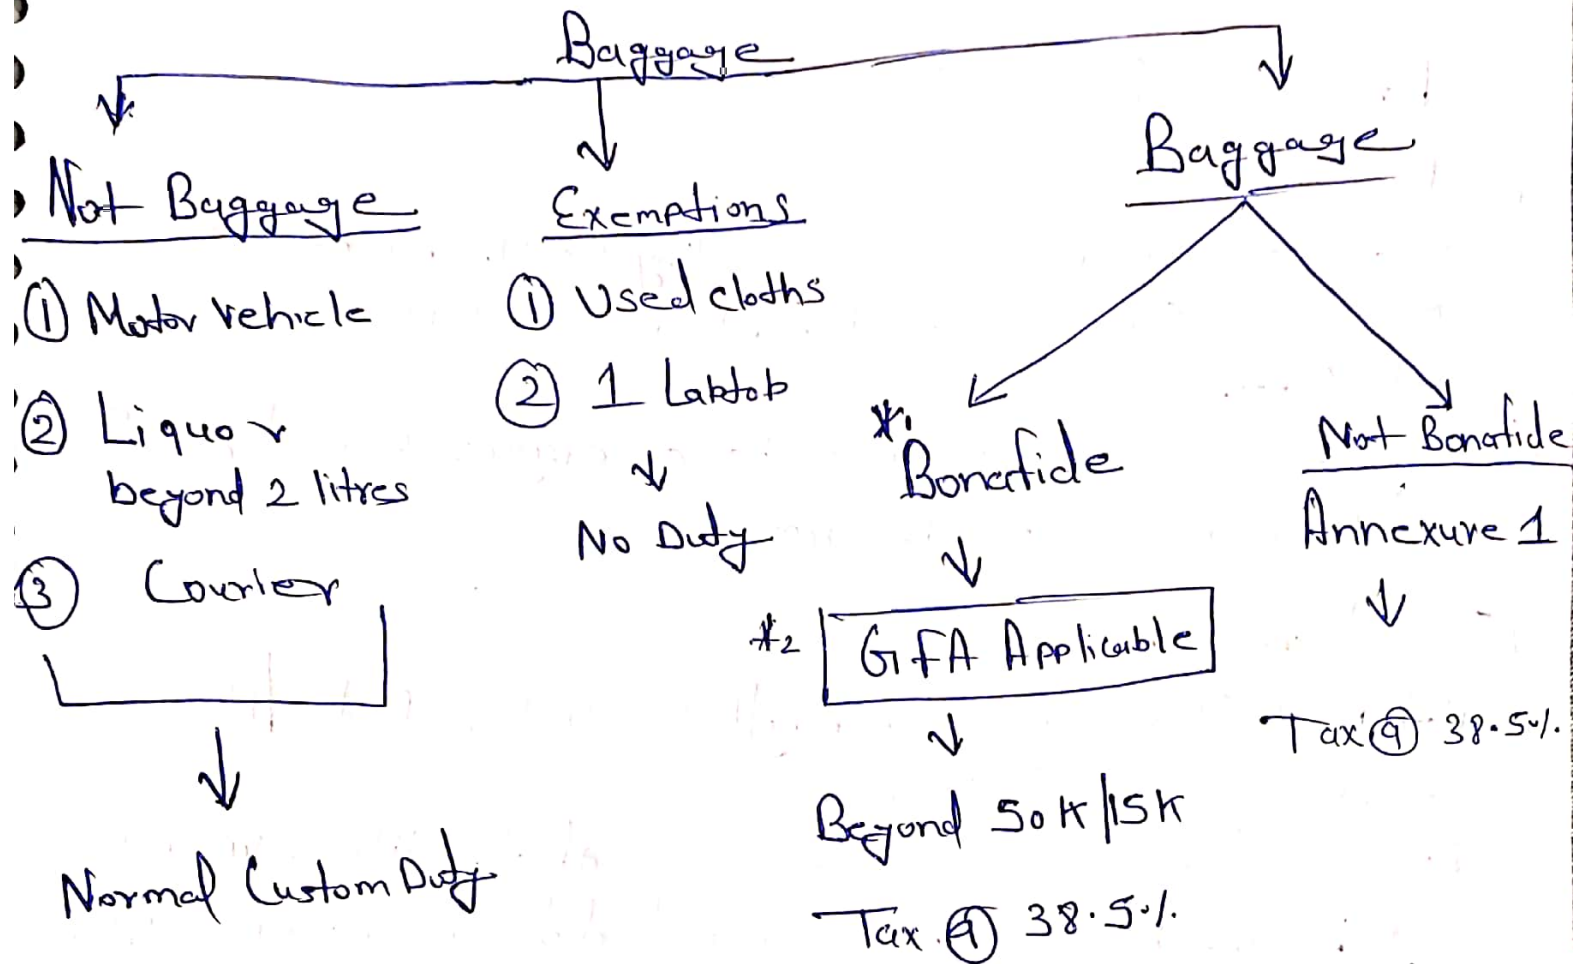 Baggage
Not Baggage
① Motor Vehicle
② Liquor
beyond 2 litres
③ Courier
Normal Custom Duty
Exemptions
① Used cloths
② 1 Laptop
No Duty
Baggage
*1
Bonafide
*2 GFA Applicable
Beyond 50K/15K
Tax @ 38.5%
Not Bonafide
Annexure 1
Tax @ 38.5%